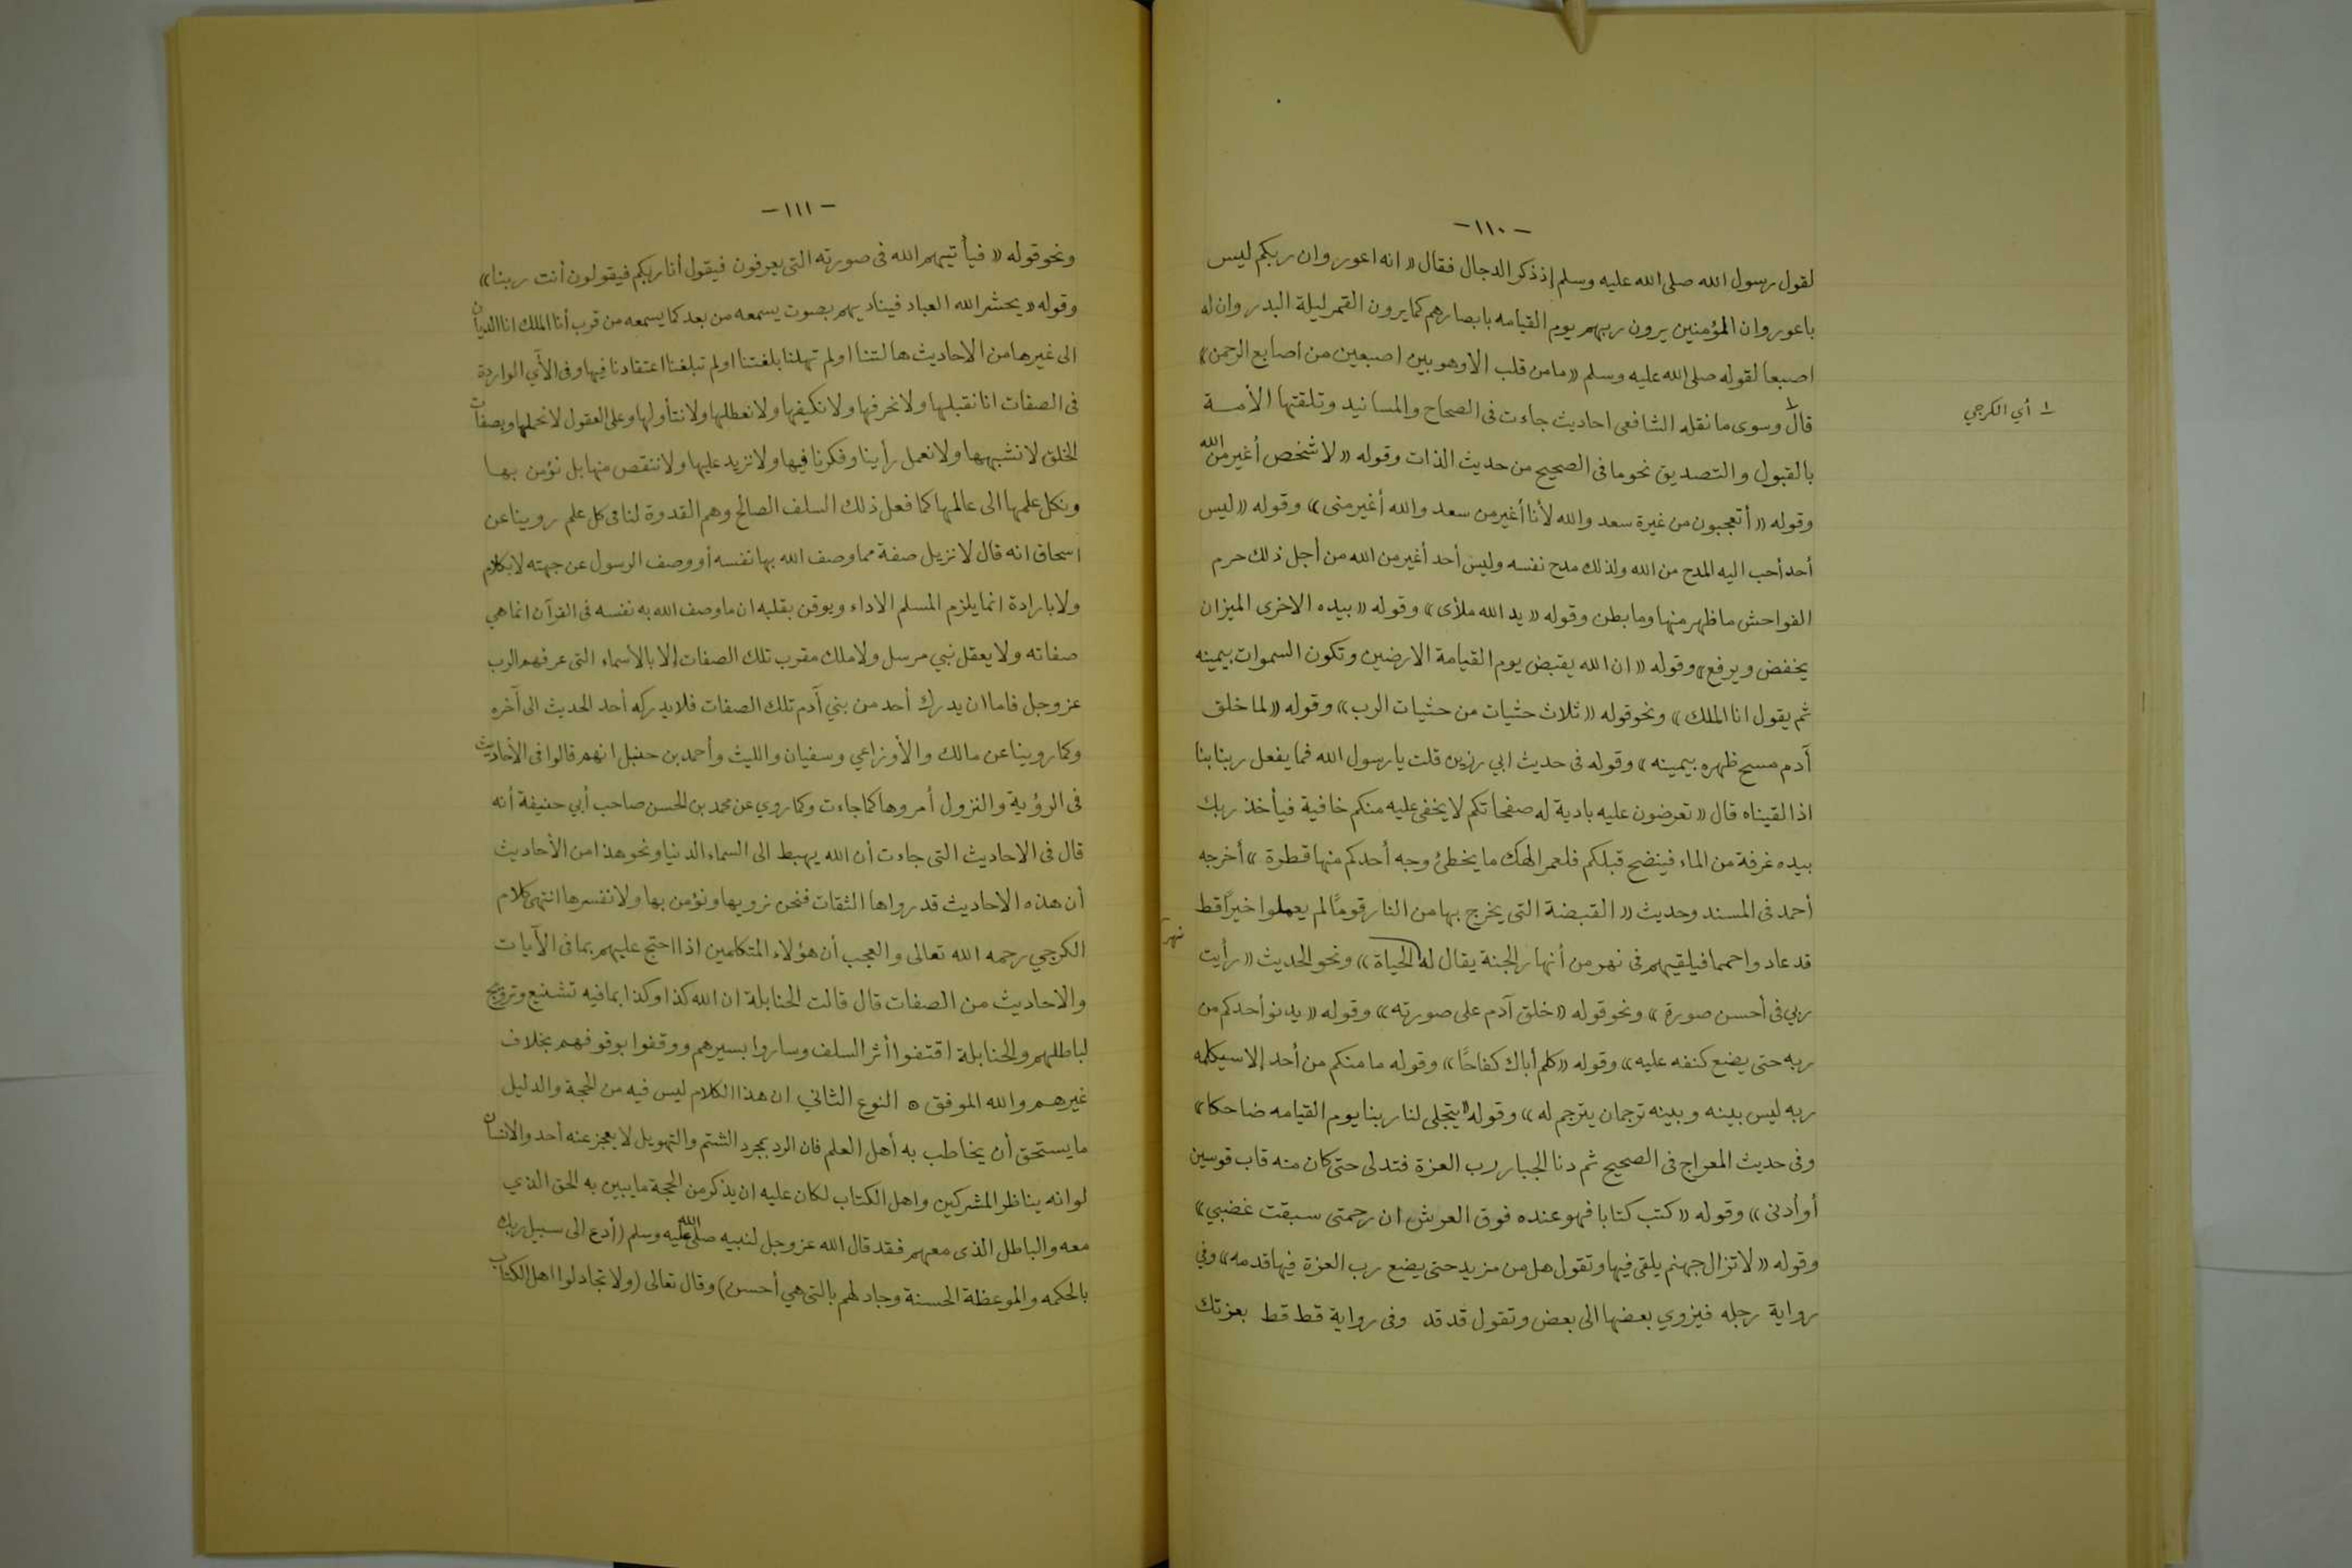 - ١١٠ -
لقول رسول الله صلى الله عليه وسلم إذ ذكر الدجال فقال « انه اعور وان ربكم ليس
باعور وان المؤمنين يرون ربهم يوم القيامه بابصارهم كما يرون القمر ليلة البدر وان له
اصبعا لقوله صلى الله عليه وسلم « ما من قلب الا وهو بين اصبعين من اصابع الرحمن »
قال١ وسوى ما نقله الشافعى احاديث جاءت فى الصحاح والمسانيد وتلقتها الأمــة
١ أي الكرجي
بالقبول والتصديق نحو ما فى الصحيح من حديث الذات وقوله « لا شخص أغير من الله
وقوله « أتعجبون من غيرة سعد والله لأنا أغير من سعد والله أغير منى » وقوله « ليس
أحد أحب اليه المدح من الله ولذلك مدح نفسه وليس أحد أغير من الله من أجل ذلك حرم
الفواحش ما ظهر منها وما بطن وقوله « يد الله ملأى » وقوله « بيده الاخرى الميزان
يخفض ويرفع » وقوله « ان الله يقبض يوم القيامة الارضين وتكون السموات بيمينه
ثم يقول انا الملك » ونحو قوله « ثلاث حثيات من حثيات الرب » وقوله « لما خلق
آدم مسح ظهره بيمينه » وقوله فى حديث ابي رزين قلت يا رسول الله فما يفعل ربنا بنا
اذا لقيناه قال « تعرضون عليه بادية له صفحاتكم لا يخفى عليه منكم خافية فيأخذ ربك
بيده غرفة من الماء فينضح قبلكم فلعمر الهك ما يخطئ وجه أحدكم منها قطرة » أخرجه
أحمد فى المسند وحديث « القبضة التى يخرج بها من النار قومًا لم يعملوا خيرًا قط
قد عادوا حمما فيلقيهم فى نهر من أنهار الجنة يقال له الحياة » ونحو الحديث « رأيت
نهر
ربي فى أحسن صورة » ونحو قوله « خلق آدم على صورته » وقوله « يدنو أحدكم من
ربه حتى يضع كنفه عليه » وقوله « كلم أباك كفاحًا » وقوله ما منكم من أحد إلا سيكلمه
ربه ليس بينه وبينه ترجمان يترجم له » وقوله « يتجلى لنا ربنا يوم القيامه ضاحكا »
وفى حديث المعراج فى الصحيح ثم دنا الجبار رب العزة فتدلى حتى كان منه قاب قوسين
أو أدنى » وقوله « كتب كتابا فهو عنده فوق العرش ان رحمتى سبقت غضبي »
وقوله « لا تزال جهنم يلقى فيها وتقول هل من مزيد حتى يضع رب العزة فيها قدمه » وفي
رواية رجله فيزوي بعضها الى بعض وتقول قد قد وفى رواية قط قط بعزتك
- ١١١ -
ونحو قوله « فيأتيهم الله فى صورته التى يعرفون فيقول أنا ربكم فيقولون أنت ربنا »
وقوله « يحشر الله العباد فيناديهم بصوت يسمعه من بعد كما يسمعه من قرب أنا الملك انا الديان
الى غيرها من الاحاديث هالتنا او لم تهلنا بلغتنا او لم تبلغنا اعتقادنا فيها وفى الآي الواردة
فى الصفات انا نقبلها ولا نحرفها ولا نكيفها ولا نعطلها ولا نتأولها وعلى العقول لا نحملها وبصفات
الخلق لا نشبهها ولا نعمل رأينا وفكرنا فيها ولا نزيد عليها ولا ننقص منها بل نؤمن بهــا
ونكل علمها الى عالمها كما فعل ذلك السلف الصالح وهم القدوة لنا فى كل علم روينا عن
اسحاق انه قال لا نزيل صفة مما وصف الله بها نفسه أو وصف الرسول عن جهته لا بكلام
ولا بارادة انما يلزم المسلم الاداء ويوقن بقلبه ان ما وصف الله به نفسه فى القرآن انما هي
صفاته ولا يعقل نبي مرسل ولا ملك مقرب تلك الصفات إلا بالأسماء التى عرفهم الرب
عز وجل فاما ان يدرك أحد من بني آدم تلك الصفات فلا يدركه أحد الحديث الى آخره
وكما روينا عن مالك والأوزاعي وسفيان والليث وأحمد بن حنبل انهم قالوا فى الأحاديث
فى الرؤية والنزول أمروها كما جاءت وكما روي عن محمد بن الحسن صاحب أبي حنيفة أنه
قال فى الاحاديث التى جاءت أن الله يهبط الى السماء الدنيا ونحو هذا من الأحاديث
أن هذه الاحاديث قد رواها الثقات فنحن نرويها ونؤمن بها ولا نفسرها انتهى كلام
الكرجي رحمه الله تعالى والعجب أن هؤلاء المتكلمين اذا احتج عليهم بما فى الآيات
والاحاديث من الصفات قال قالت الحنابلة ان الله كذا وكذا بما فيه تشنيع وترويج
لباطلهم والحنابلة اقتفوا أثر السلف وساروا بسيرهم ووقفوا بوقوفهم بخلاف
غيرهم والله الموفق ۞ النوع الثاني ان هذا الكلام ليس فيه من الحجة والدليل
ما يستحق أن يخاطب به أهل العلم فان الرد بمجرد الشتم والتهويل لا يعجز عنه أحد والانسان
لو انه يناظر المشركين واهل الكتاب لكان عليه ان يذكر من الحجة ما يبين به الحق الذي
معه والباطل الذى معهم فقد قال الله عز وجل لنبيه صلى الله عليه وسلم ( أدع الى سبيل ربك
بالحكمه والموعظة الحسنة وجادلهم بالتى هي أحسن ) وقال تعالى ( ولا تجادلوا اهل الكتاب